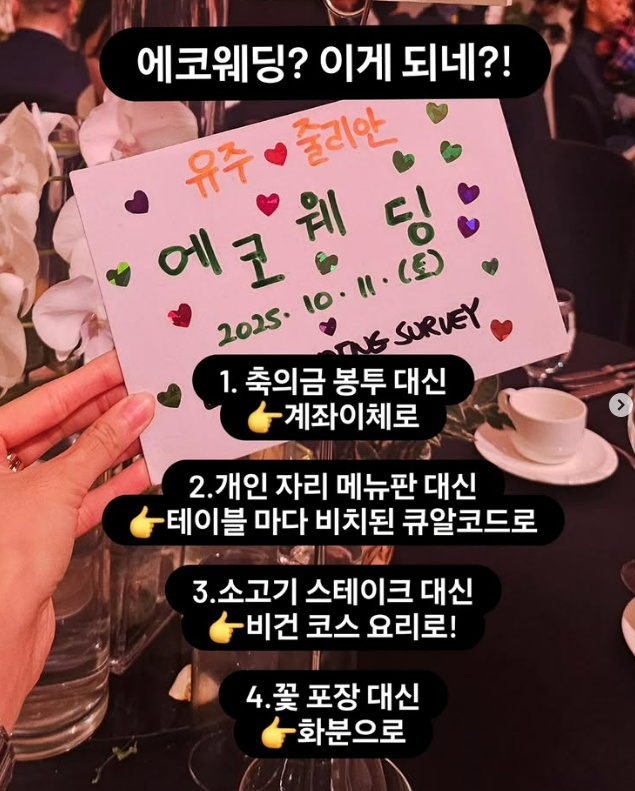 에코웨딩? 이게 되네?!
유주 줄리안
에코 웨딩
2025. 10. 11. (토)
SURVEY
1. 축의금 봉투 대신
👉계좌이체로
2.개인 자리 메뉴판 대신
👉테이블 마다 비치된 큐알코드로
3.소고기 스테이크 대신
👉비건 코스 요리로!
4.꽃 포장 대신
👉화분으로